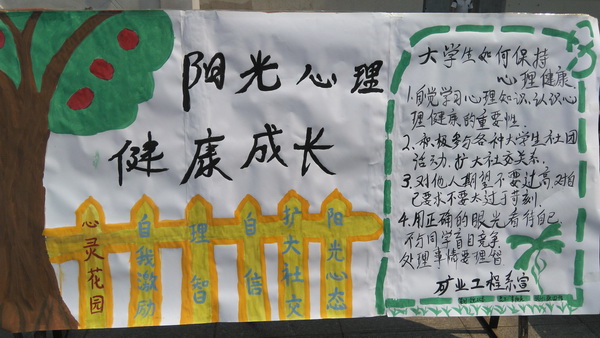 阳光心理
健康成长
心灵花园
自我激励
理智
自信
扩大社交
阳光心态
大学生如何保持
心理健康
1.自觉学习心理知识,认识心
理健康的重要性.
2.积极参与各种大学生社团
活动,扩大社交关系.
3.对他人期望不要过高,对自
己要求不要太过于苛刻.
4.用正确的眼光看待自己.
不与同学盲目竞争
处理事情要理智
矿业工程系宣